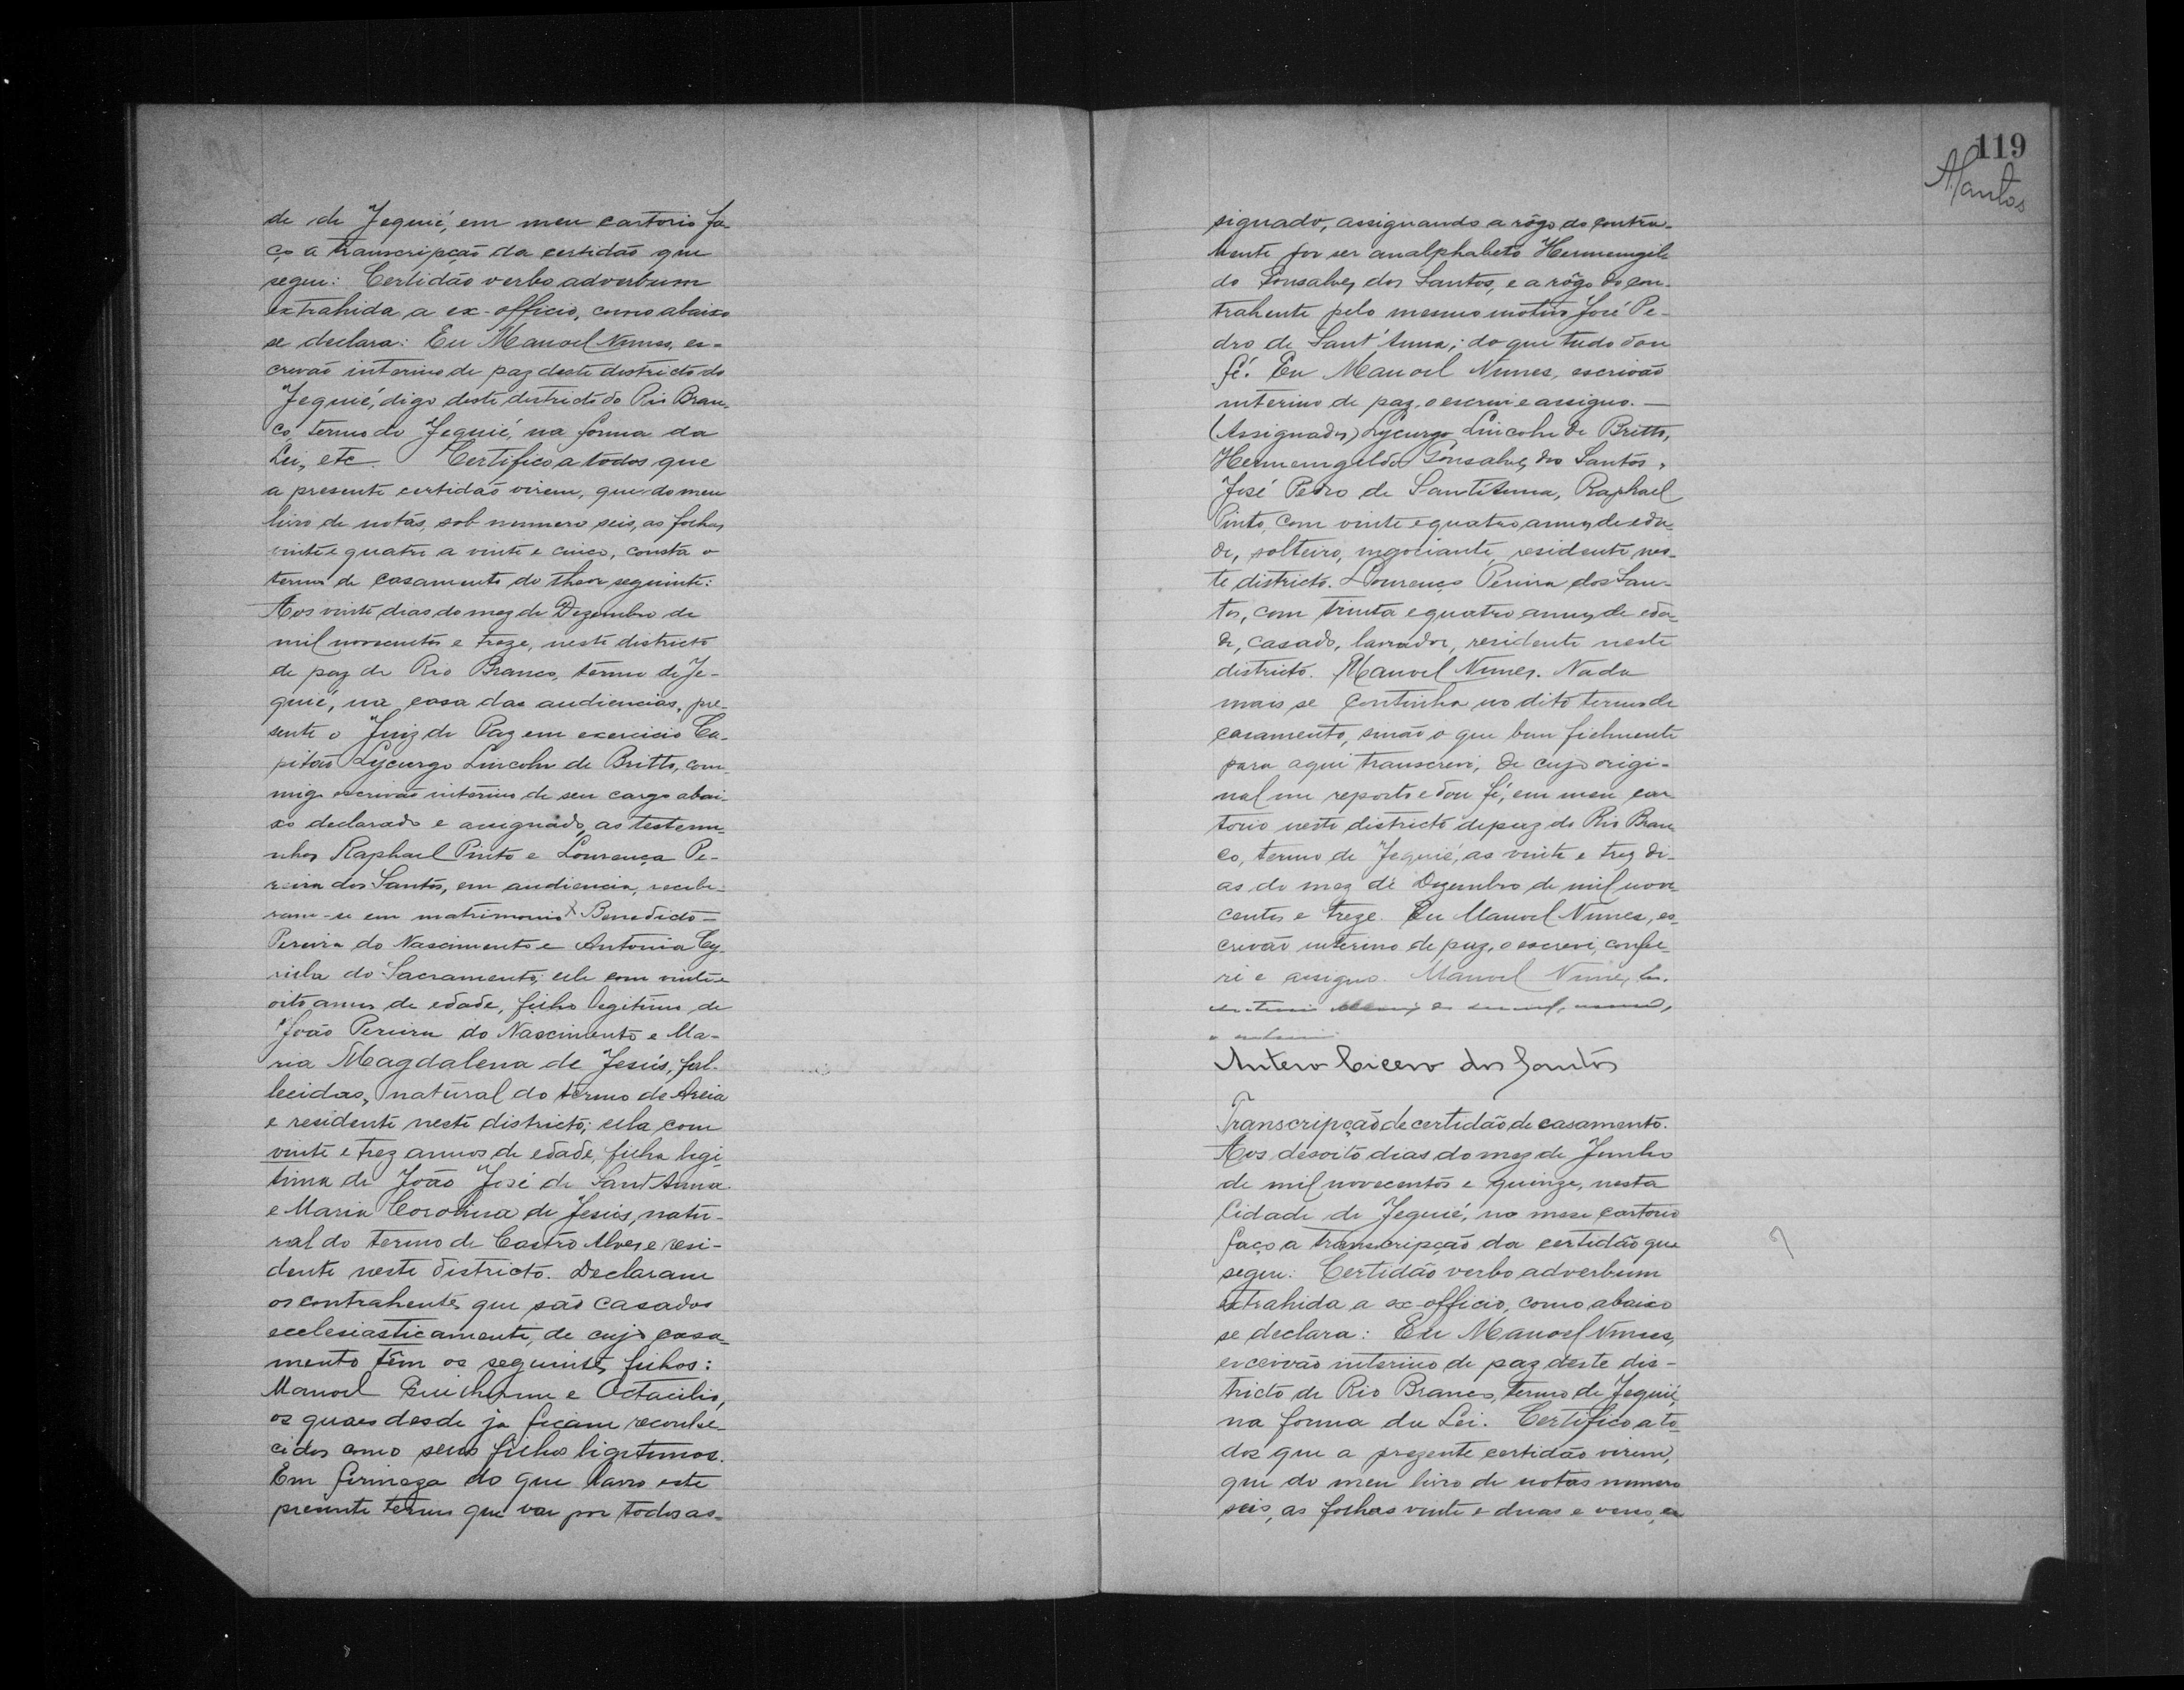 de de Jequié, em meu cartorio fa-
ço a transcripção da certidão que
segue: Certidão verbo adverbum
extrahida a ex-officio, como abaixo
se declara: Eu Manoel Nunes, es-
crivão interino de paz deste districto do
Jequié, digo deste districto do Rio Bran-
co, termo de Jequié, na forma da
Lei, etc. Certifico a todos que
a presente certidão virem, que do meu
livro de notas, sob numero seis, as folhas
vinte e quatro a vinte e cinco, consta o
termo de casamento do theor seguinte:
Aos vinte dias do mez de Dezembro de
mil novecentos e treze, neste districto
de paz de Rio Branco, termo de Je-
quié, na casa das audiencias, pre-
sente o Juiz de Paz em exercicio Ca-
pitão Lycurgo Lincoln de Britto, com-
migo escrivão interino de seu cargo abai-
xo declarado e assignado, as testemu-
nhas Raphael Pinto e Lourenço Pe-
reira dos Santos, em audiencia, recebe-
ram-se em matrimonio Benedicto
Pereira do Nascimento e Antonia Cy-
rilla do Sacramento; elle com vinte e
oito annos de edade, filho legitimo de
João Pereira do Nascimento e Ma-
ria Magdalena de Jesús, fal-
lecidos, natural do termo de Areia
e residente neste districto; ella com
vinte e trez annos de edade, filha legi-
tima de João José de Sant'Anna
e Maria Carolina de Jesús, natu-
ral do termo de Castro Alves e resi-
dente neste districto. Declaram
os contrahentes que são casados
ecclesiasticamente, de cujo casa-
mento têm os seguintes filhos:
Manoel Guilherme e Octacilio,
os quaes desde ja ficam reconhe-
cidos como seus filhos ligitimos.
Em firmeza do que lavro este
presente termo que vae por todos as-
119
signado, assignando a rôgo do contra-
hente por ser analphabeto Hermenegil-
do Gonsalves dos Santos, e a rôgo da con-
trahente pelo mesmo motivo José Pe-
dro de Sant'Anna; do que tudo dou
fé. Eu Manoel Nunes, escrivão
interino de paz, o escrevi e assigno.—
(Assignados) Lycurgo Lincoln de Britto,
Hermenegildo Gonsalves dos Santos,
José Pedro de Sant'Anna, Raphael
Pinto, com vinte e quatro annos de eda-
de, solteiro, negociante, residente nes-
te districto. Lourenço Pereira dos San-
tos, com trinta e quatro annos de eda-
de, casado, lavrador, residente neste
districto. Manoel Nunes. Nada
mais se continha no dito termo de
casamento, sinão o que bem fielmente
para aqui transcrevi, de cujo origi-
nal me reporto e dou fé, em meu car-
torio neste districto de paz do Rio Bran-
co, termo de Jequié, as vinte e trez di-
as do mez de Dezembro de mil nove-
centos e treze. Eu Manoel Nunes, es-
crivão interino de paz, o escrevi, confe-
ri e assigno. Manoel Nunes
Antero Cicero dos Santos
Transcripção de certidão de casamento.
Aos desoito dias do mez de Junho
de mil novecentos e quinze, nesta
Cidade de Jequié, no meu cartorio
faço a transcripção da certidão que
segue: Certidão verbo adverbum
extrahida a ex-officio, como abaixo
se declara: Eu Manoel Nunes,
escrivão interino de paz deste dis-
tricto de Rio Branco, termo de Jequié,
na forma da Lei. Certifico a to-
dos que a prezente certidão virem,
que do meu livro de notas numero
seis, as folhas vinte e duas e verso,